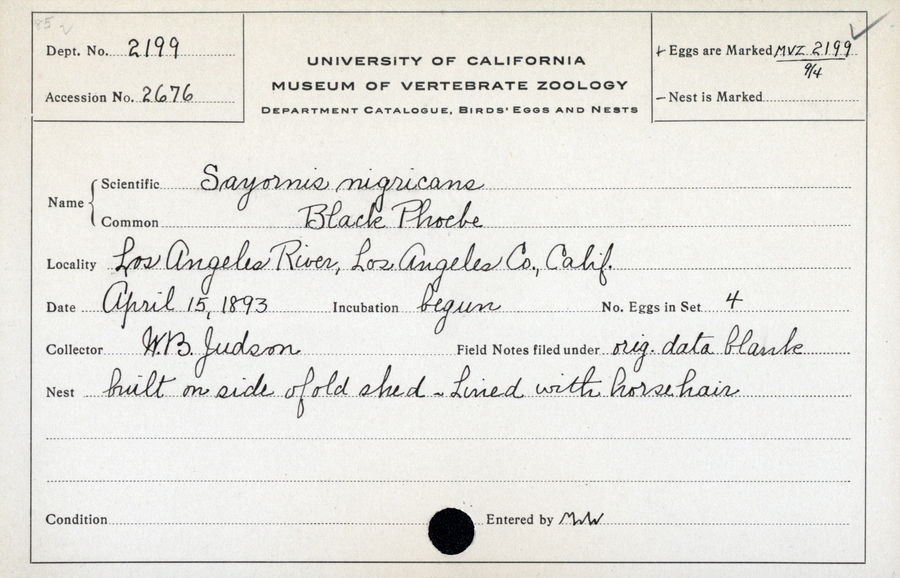 85
Dept. No. 2199
Accession No. 2676
UNIVERSITY OF CALIFORNIA
MUSEUM OF VERTEBRATE ZOOLOGY
DEPARTMENT CATALOGUE, BIRDS' EGGS AND NESTS
+ Eggs are Marked MVZ 2199
9/4
- Nest is Marked
Name
Scientific Sayornis nigricans
Common Black Phoebe
Locality Los Angeles River, Los Angeles Co., Calif.
Date April 15, 1893 Incubation begun No. Eggs in Set 4
Collector W.B. Judson Field Notes filed under orig. data blank
Nest built on side of old shed - Lined with horsehair
Condition Entered by